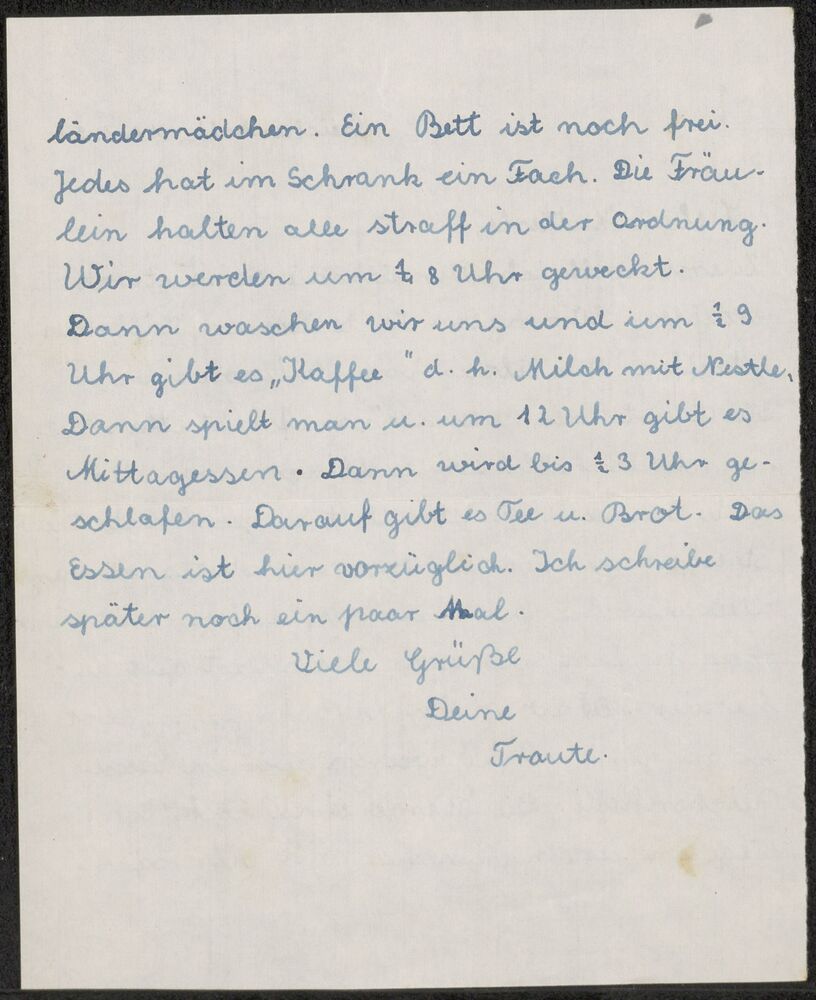 ländermädchen. Ein Bett ist noch frei.
Jedes hat im Schrank ein Fach. Die Fräu-
lein halten alle straff in der Ordnung.
Wir werden um ½ 8 Uhr geweckt.
Dann waschen wir uns und um ½ 9
Uhr gibt es „Kaffee" d. h. Milch mit Nestle,
Dann spielt man u. um 12 Uhr gibt es
Mittagessen. Dann wird bis ½ 3 Uhr ge-
schlafen. Darauf gibt es Tee u. Brot. Das
Essen ist hier vorzüglich. Ich schreibe
später noch ein paar Mal.
Viele Grüße
Deine
Traute.